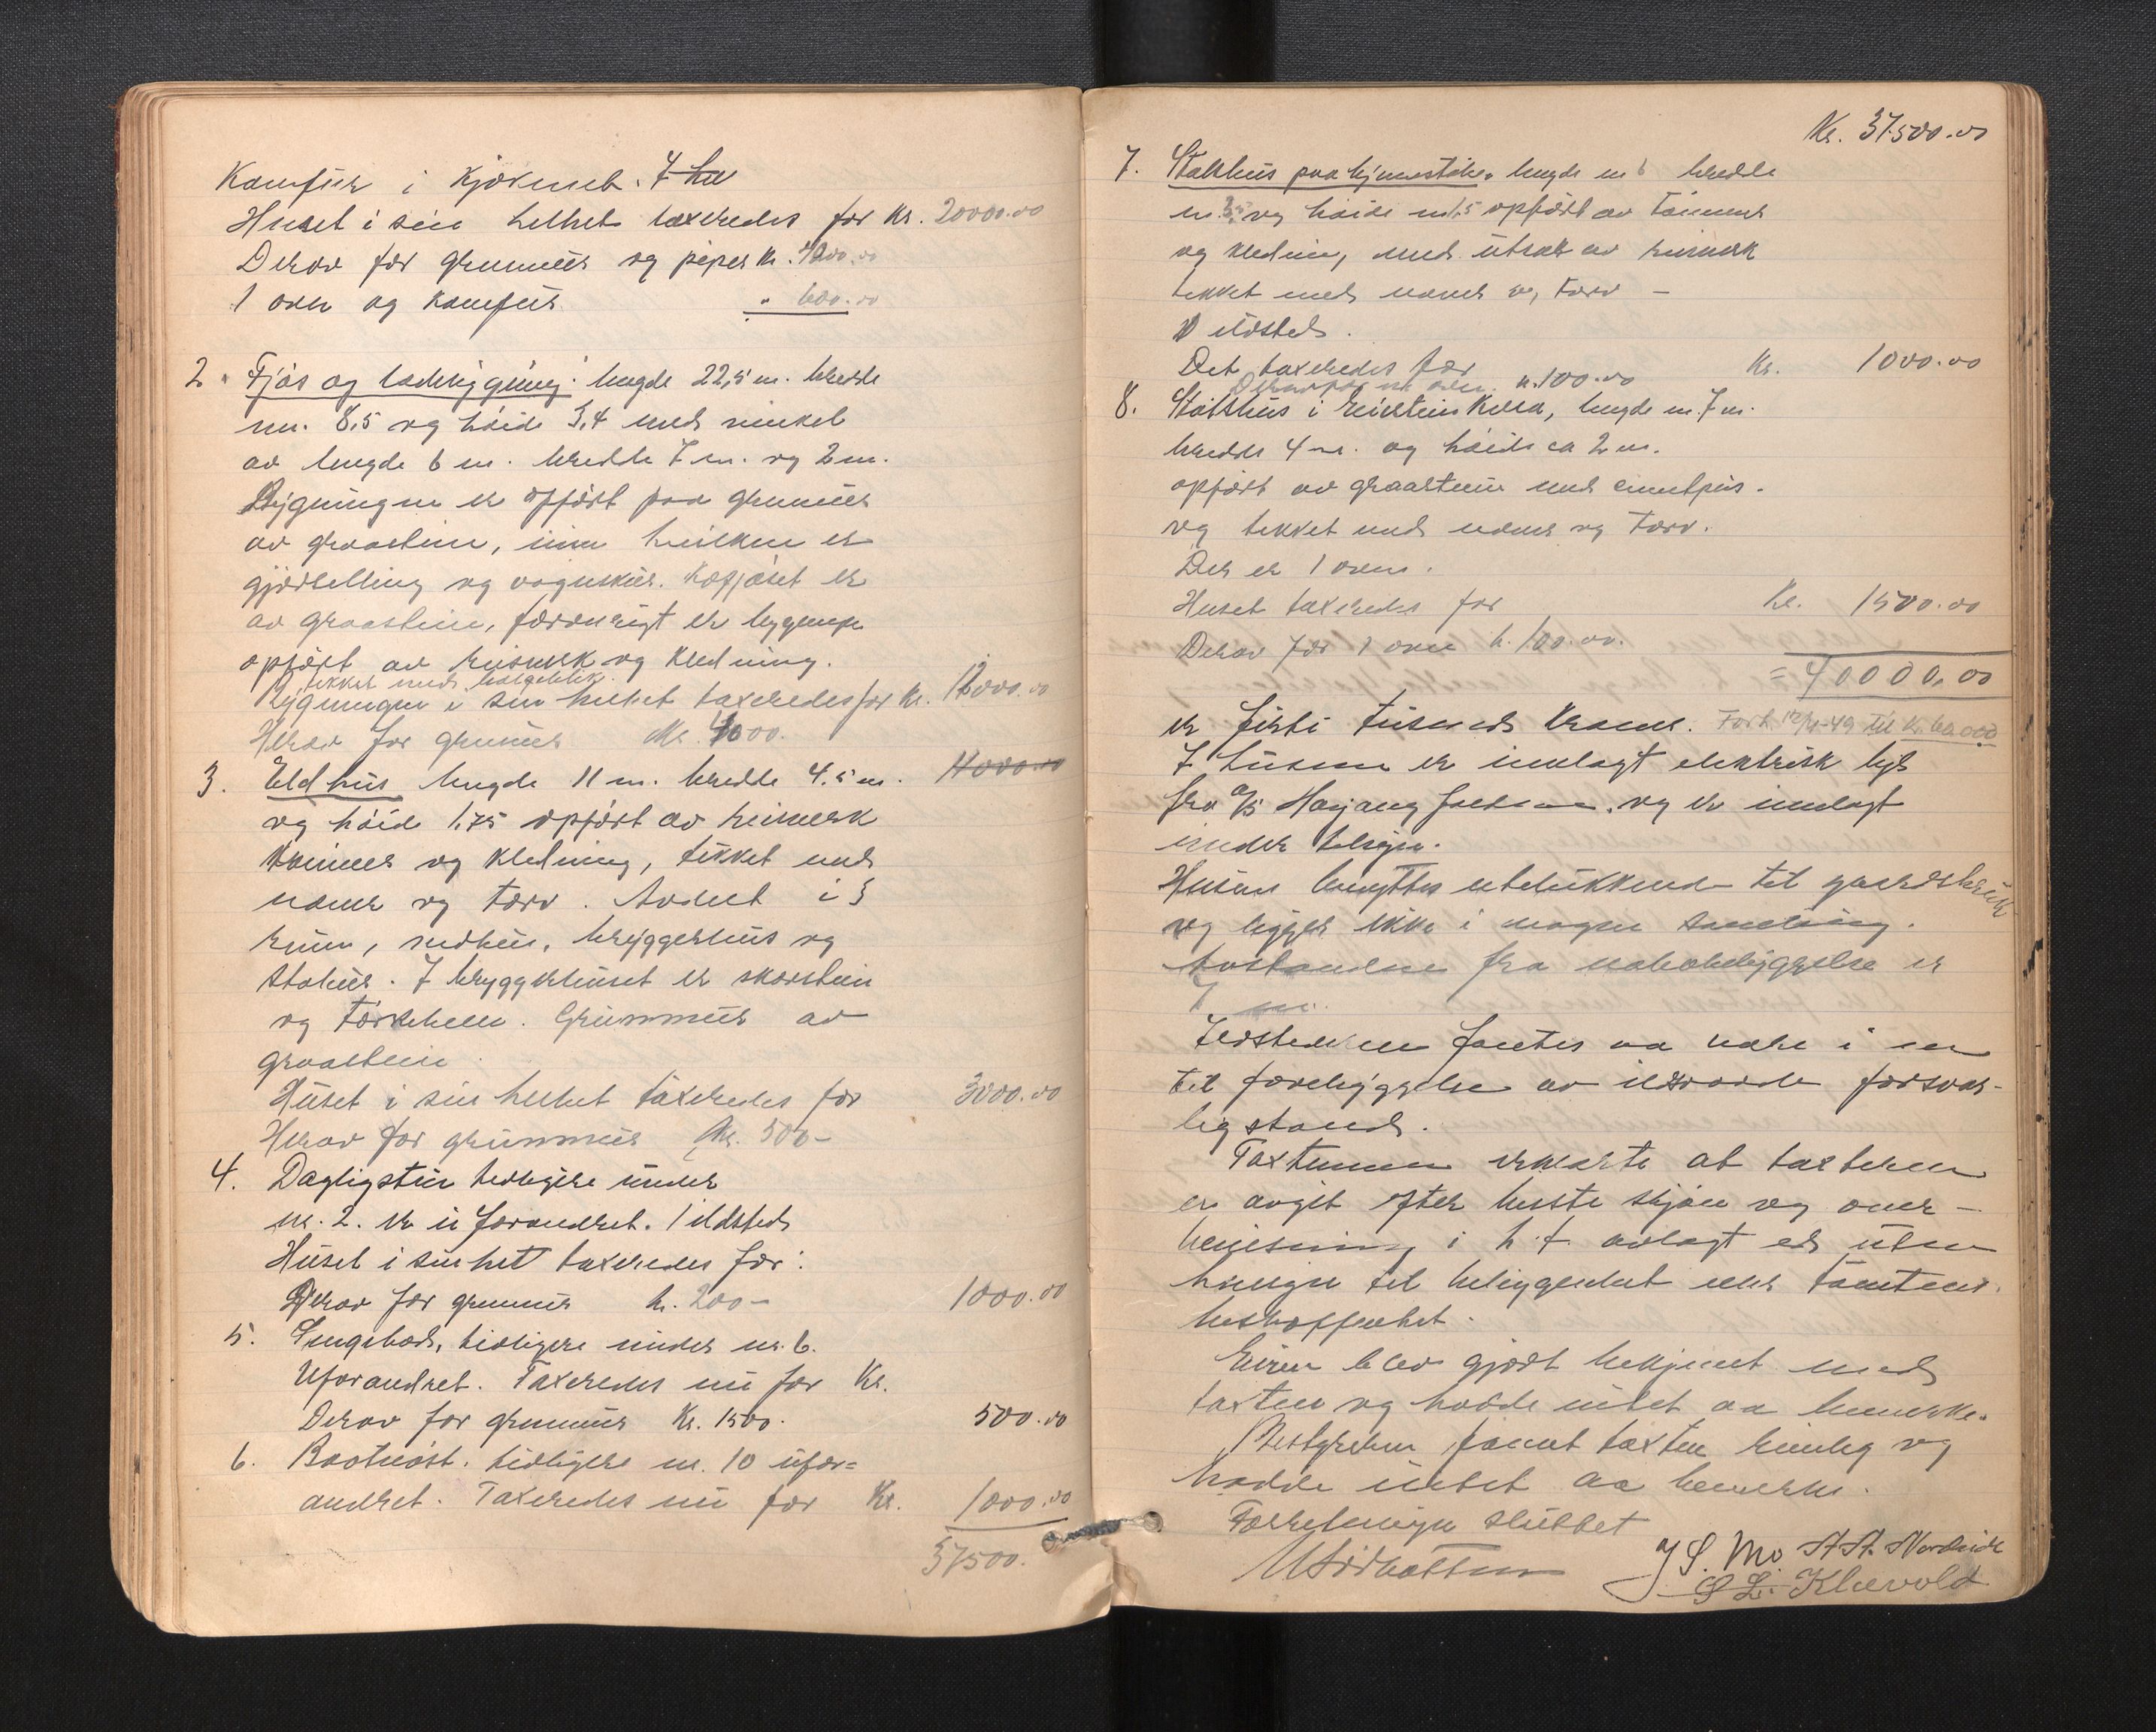 Komfür i kjøkenet. I hu
Huset i sin helhet taxeredes for Kr. 20000.00
Derav for grunmür og piper Kr. 4000.00
1 ovn og komfür " 600.00
2. Fjøs og ladebygning: lengde 22,5 m. bredde
m. 8,5 og høide 3,4 med vinkel
av lengde 6 m. bredde 7 m. og 2 m.
Bygningen er opført paa grunmür
av graastein, innen hvilken er
gjødselbing og vognskür. Kofjøset er
av graastein, forøvrigt er bygningen
opført av reisverk og kledning.
tekket med bølgeblik
Bygningen i sin helhet taxeredes for Kr. 12000.00
Herav for grunmür Kr. 4000.
14000.00
3. Eldhüs lengde 11 m. bredde 4.5 m
og høide 1.75 opført av reisverk
tømmer og kledning, tekket med
næver og torv. Avdelt i 3
rum, vedhüs, bryggerhüs og
stabür. I bryggerhüset er skorstein
og tørkehell. Grünmür av
graastein.
Hüset i sin helhet taxeredes for 3000.00
Herav for grünmür Kr. 500-
4. Dagligstür tidligere under
nr. 2. er üforandret. 1 ildsted
Hüset i sin het taxeredes for:
Derav for grunmür kr. 200- 1000.00
5. tidligere ünder nr. 6.
Uforandret. Taxeredes nü for Kr.
Derav for grunmür Kr. 150. 500.00
6. Baotnøst. tidligere nr. 10 üfor=
andret. Taxeredes nü for Kr. 1000.00
37500.
Kr. 37500.00
7. lengde m 6 bredde
m 3,5 og høide m 1,5 opført av tømmer
og kledning, med utbak av reisverk
tekket med næver og torv -
1 ildsted.
Det taxeredes for Kr. 1000.00
Derav for en oven kr. 100.00
8. lengde m. 7 m.
bredde 4 m. og høide ca 2 m.
opført av graastein med cimentpüs.
og tekket med næver og torv.
Der er 1 oven.
Huset taxeredes for Kr. 1500.00
Derav for 1 oven kr. 100.00.
= 40000,00
er førti tüsinde kroner. Forh. 12/4-49 til kr. 60.000
I hüsene er innlagt elektrisk lys
fra A/S og er innlagt
under tilsyn.
Husene benyttes utelukkende til gaardsbrük
og ligger ikke i nogen samling.
Avstanden fra nabobebyggelse er
7 m.
Ildstederne fantes aa være i en
til forebyggelse av ildsvaade forsvar-
lig stand.
Taxtmennene erklærte at taxterne
er avgit efter beste skjøn og over-
bevisning i h. t. avlagt ed uten
hensyn til beliggenhet eller tomtens
beskaffenhet.
Eieren blev gjort bekjent med
taxten og hadde intet aa bemerke.
Bestyreren fannt taxten rimelig og
hadde intet aa bemerke.
Forretningen sluttet
J S. Mo A A. Nordvik
S L. Klævold